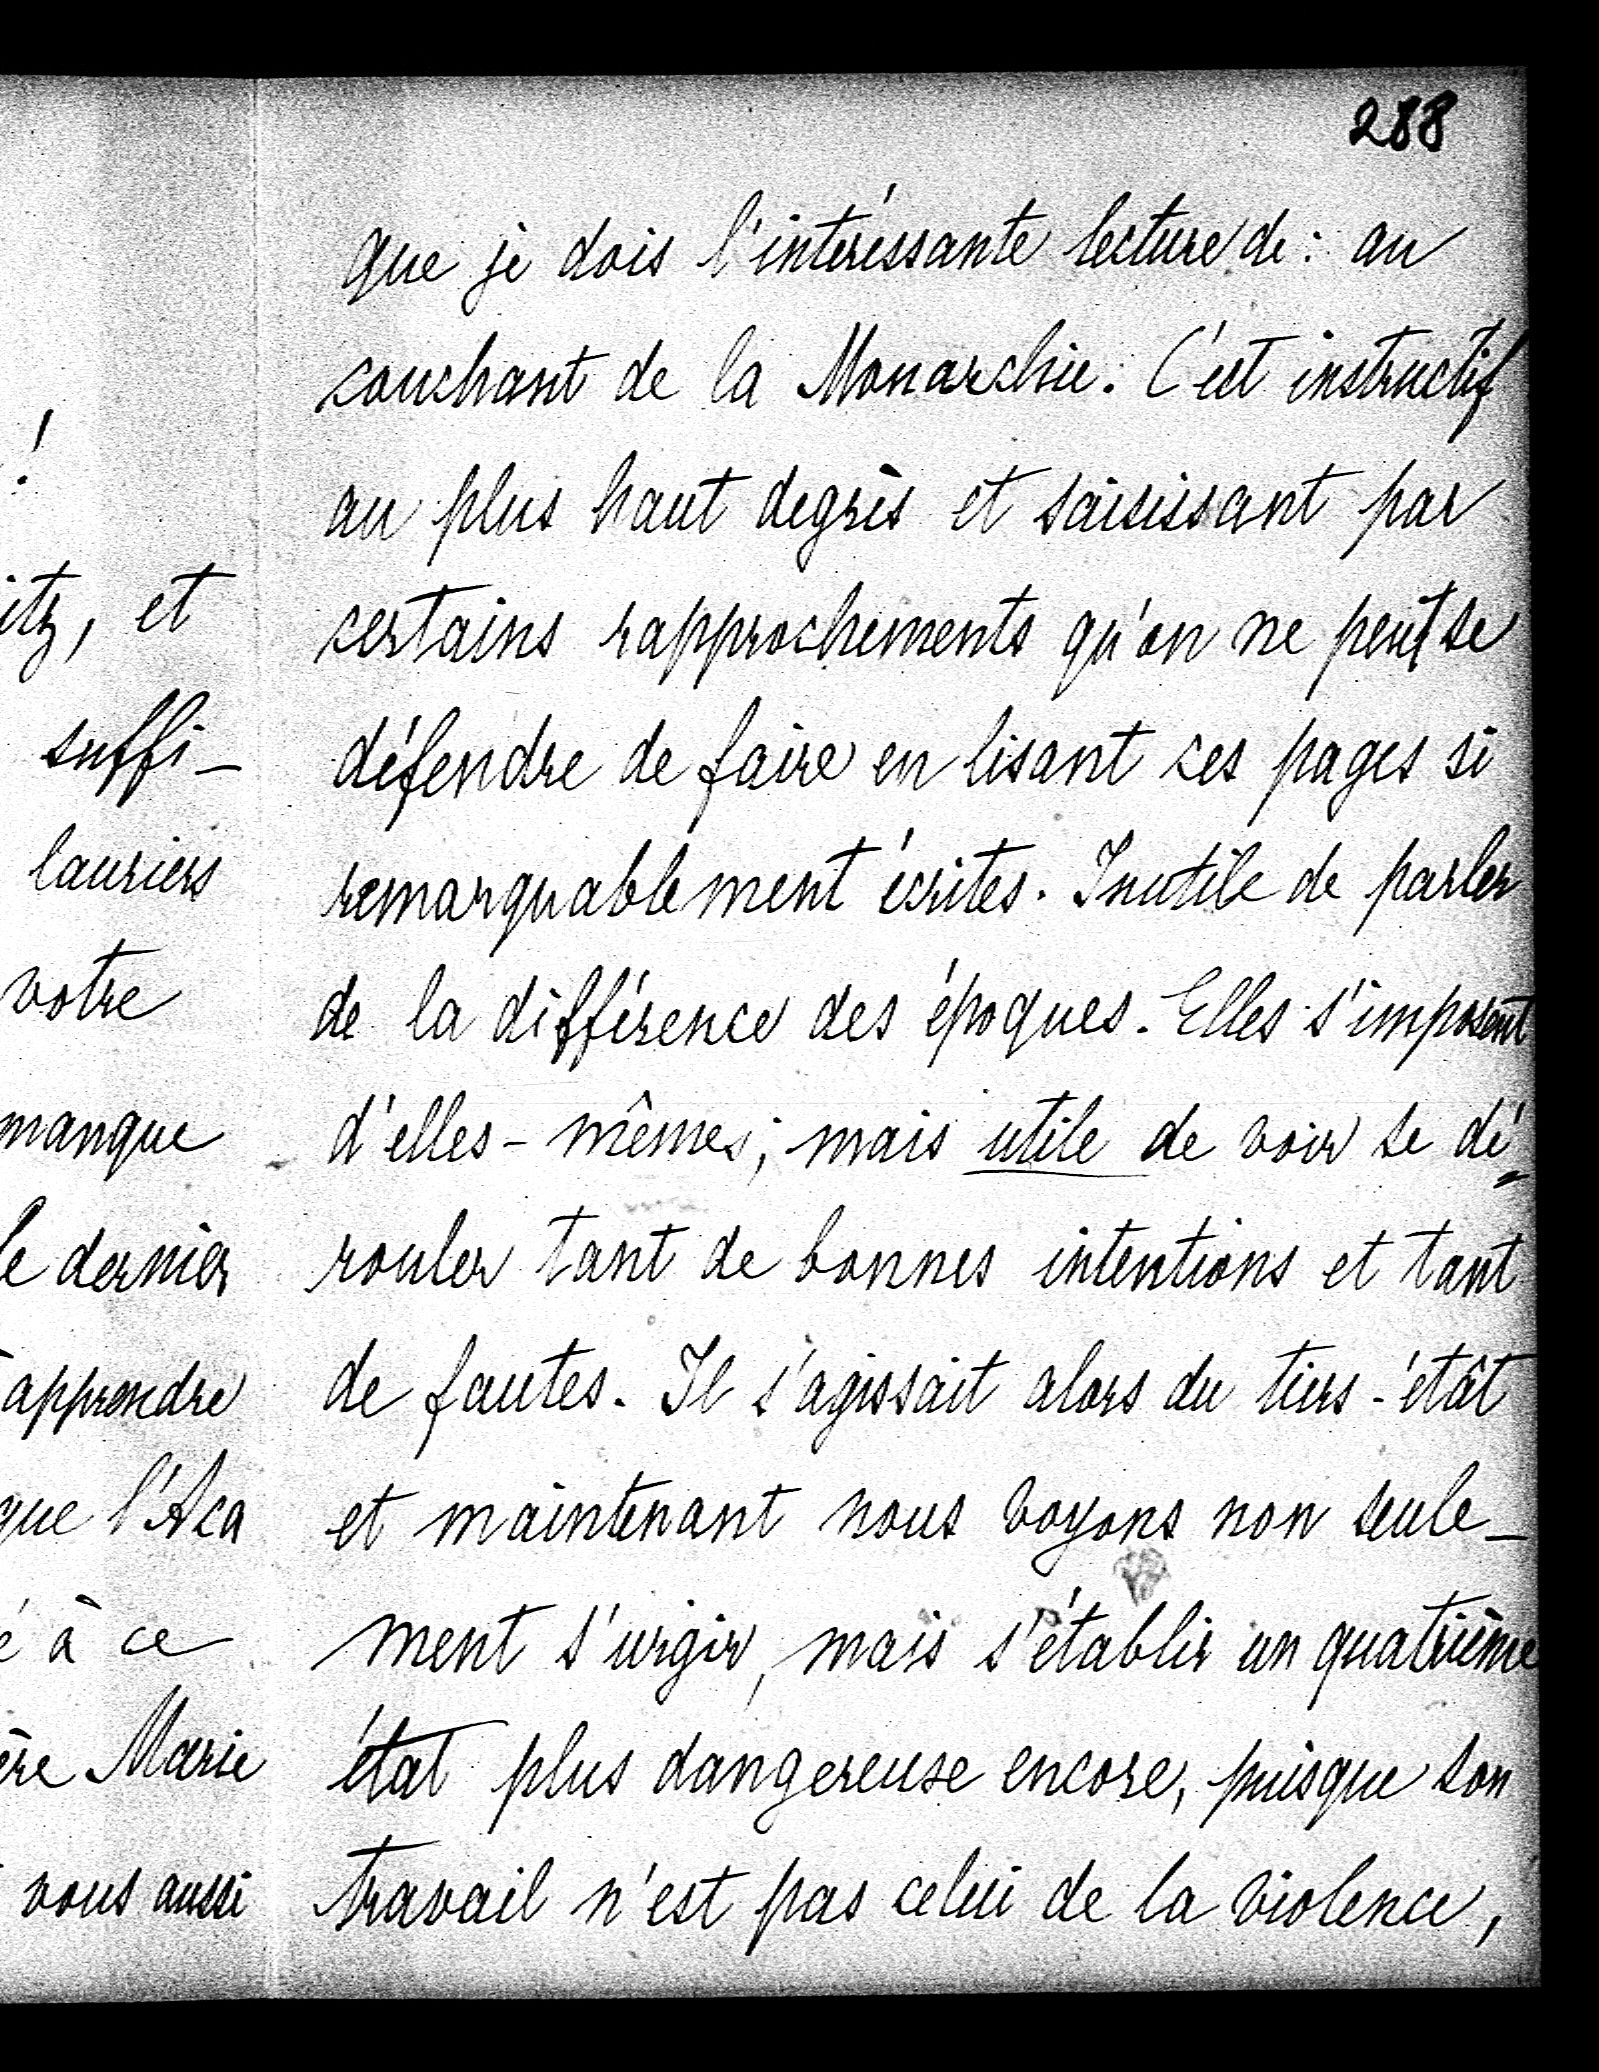 288
!
itz, et
suffi-
lauriers
votre
manque
le dernier
apprendre
que l'Aca
é à ce
ère Marie
vous aussi
que je dois l'intéressante lecture de : au
couchant de la Monarchie. C'est instructif
au plus haut degrès et saisissant par
certains rapprochements qu'on ne peut se
défendre de faire en lisant ces pages si
remarquablement écrites. Inutile de parler
de la différence des époques. Elles s'imposent
d'elles-mêmes; mais utile de voir se dé=
rouler tant de bonnes intentions et tant
de fautes. Il s'agissait alors du tiers-étât
et maintenant nous voyons non seule-
ment s'urgir, mais s'établir un quatrième
état plus dangereuse encore, puisque son
travail n'est pas celui de la violence,